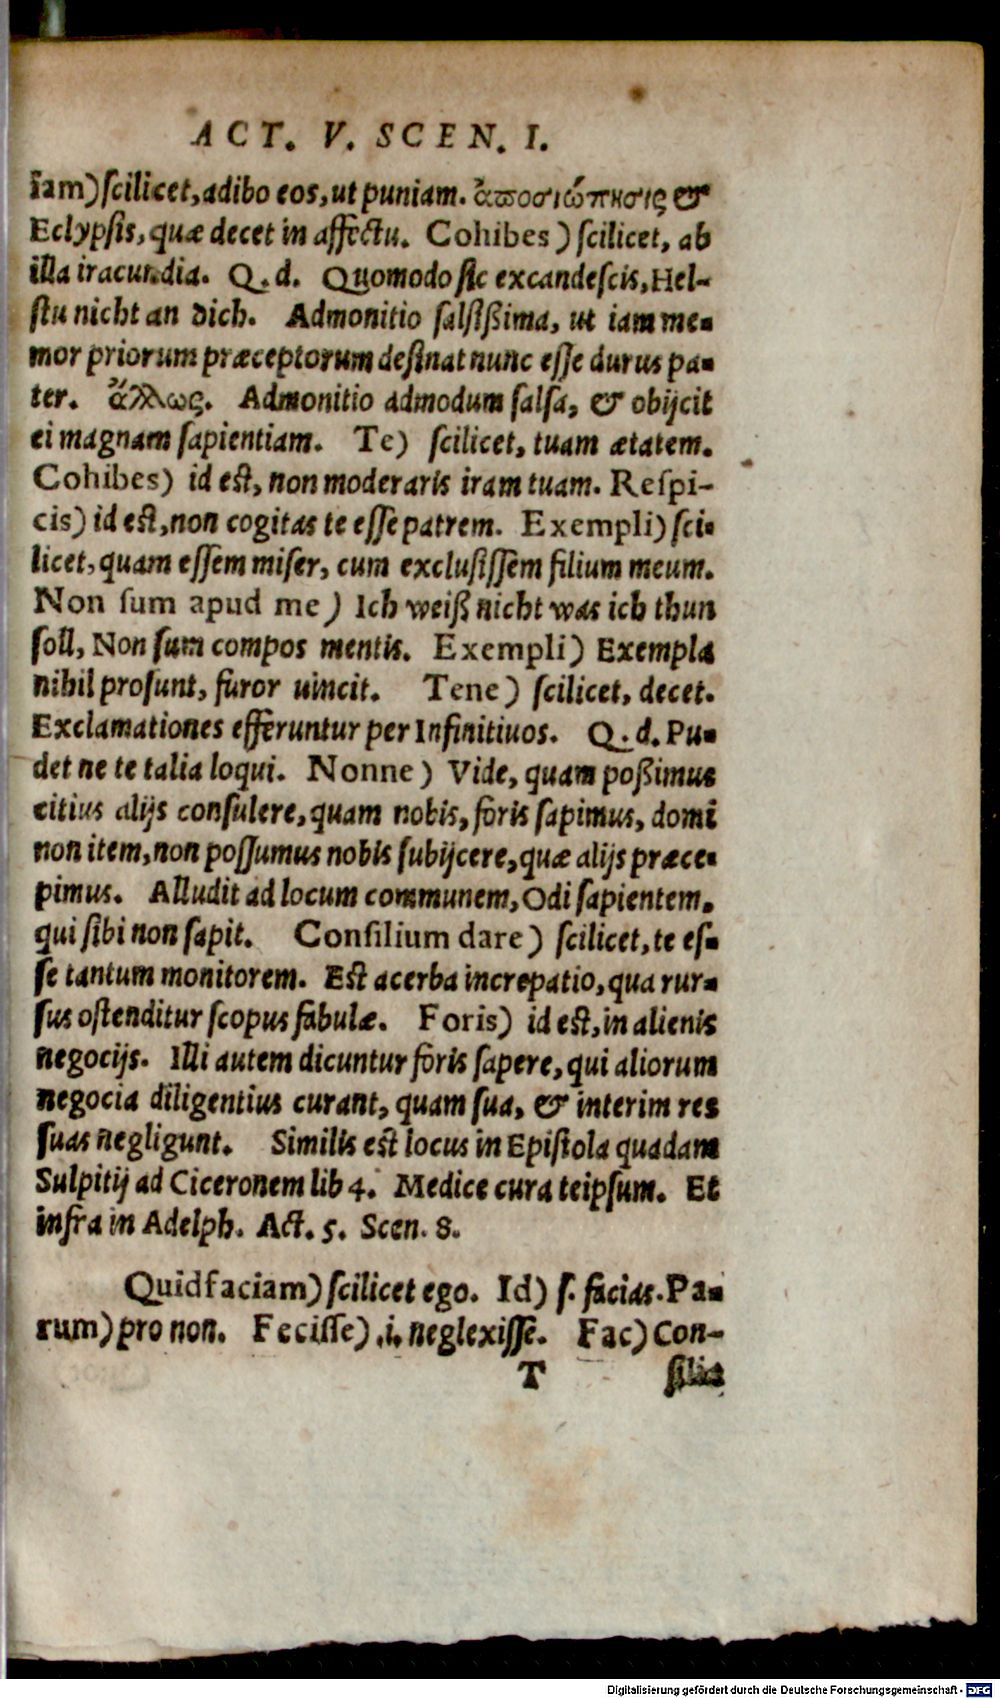 ACT. V. SCEN. I.
iam) ſcilicet, adibo eos, ut puniam. ἀποσιώπησις &
Eclypſis, quæ decet in affectu. Cohibes) ſcilicet, ab
illa iracundia. Q. d. Quomodo ſic excandeſcis, Hel-
ſtu nicht an dich. Admonitio ſalſißima, ut iam me-
mor priorum præceptorum deſinat nunc eſſe durus pa-
ter. ἄλλως. Admonitio admodum ſalſa, & obijcit
ei magnam ſapientiam. Te) ſcilicet, tuam ætatem.
Cohibes) id eſt, non moderaris iram tuam. Reſpi-
cis) id eſt, non cogitas te eſſe patrem. Exempli) ſci-
licet, quam eſſem miſer, cum excluſiſſem filium meum.
Non ſum apud me) Ich weiß nicht was ich thun
ſoll, Non ſum compos mentis. Exempli) Exempla
nihil proſunt, furor uincit. Tene) ſcilicet, decet.
Exclamationes efferuntur per Infinitiuos. Q. d. Pu-
det ne te talia loqui. Nonne) Vide, quam poßimus
citius alijs conſulere, quam nobis, foris ſapimus, domi
non item, non poſſumus nobis ſubijcere, quæ alijs præce-
pimus. Alludit ad locum communem, Odi ſapientem.
qui ſibi non ſapit. Conſilium dare) ſcilicet, te eſ-
ſe tantum monitorem. Eſt acerba increpatio, qua rur-
ſus oſtenditur ſcopus fabulæ. Foris) id eſt, in alienis
negocijs. Illi autem dicuntur foris ſapere, qui aliorum
negocia diligentius curant, quam ſua, & interim res
ſuas negligunt. Similis eſt locus in Epiſtola quadam
Sulpitij ad Ciceronem lib 4. Medice cura teipſum. Et
infra in Adelph. Act. 5. Scen. 8.
Quid faciam) ſcilicet ego. Id) ſ. facias. Pa-
rum) pro non. Feciſſe) .i. neglexiſſe. Fac) Con-
T ſilia
Digitalisierung gefördert durch die Deutsche Forschungsgemeinschaft - DFG